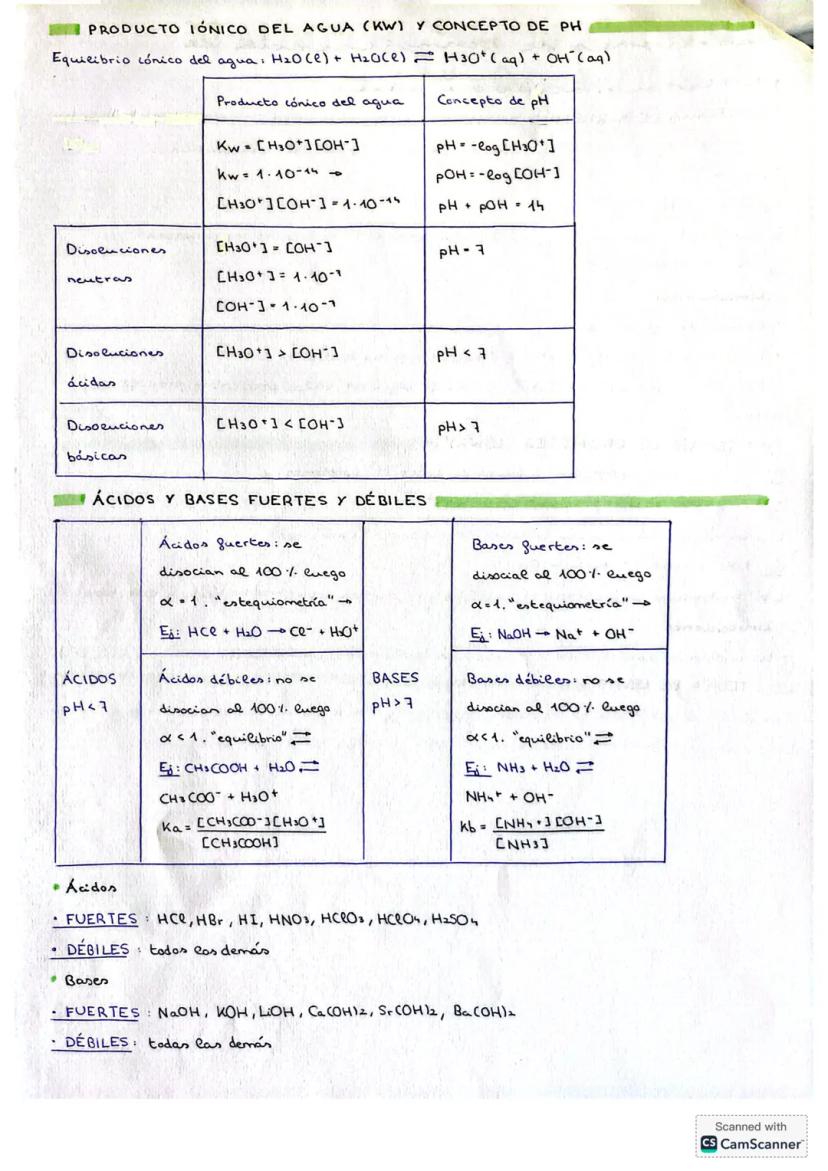 PRODUCTO IÓNICO DEL AGUA (KW) Y CONCEPTO DE PH
Equilibrio iónico del agua: H2O(l) + H2O(l) ⇄ H3O⁺(aq) + OH⁻(aq)
Producto iónico del agua
Concepto de pH
Kw = [H3O⁺][OH⁻]
Kw = 1·10⁻¹⁴ →
[H3O⁺][OH⁻] = 1·10⁻¹⁴
pH = -log[H3O⁺]
pOH = -log[OH⁻]
pH + pOH = 14
Disoluciones
neutras
[H3O⁺] = [OH⁻]
[H3O⁺] = 1·10⁻⁷
[OH⁻] = 1·10⁻⁷
pH = 7
Disoluciones
ácidas
[H3O⁺] > [OH⁻]
pH < 7
Disoluciones
básicas
[H3O⁺] < [OH⁻]
pH > 7
ÁCIDOS Y BASES FUERTES Y DÉBILES
ÁCIDOS
pH < 7
Ácidos fuertes: se
disocian al 100% luego
α = 1. "estequiometría" →
Ej: HCl + H2O → Cl⁻ + H3O⁺
Ácidos débiles: no se
disocian al 100% luego
α < 1. "equilibrio" ⇄
Ej: CH3COOH + H2O ⇄
CH3COO⁻ + H3O⁺
Ka = [CH3COO⁻][H3O⁺]
[CH3COOH]
BASES
pH > 7
Bases fuertes: se
disocial al 100% luego
α = 1. "estequiometría" →
Ej: NaOH → Na⁺ + OH⁻
Bases débiles: no se
disocian al 100% luego
α < 1. "equilibrio" ⇄
Ej: NH3 + H2O ⇄
NH4⁺ + OH⁻
Kb = [NH4⁺][OH⁻]
[NH3]
• Ácidos
· FUERTES: HCl, HBr, HI, HNO3, HClO3, HClO4, H2SO4
· DÉBILES: todos los demás
• Bases
· FUERTES: NaOH, KOH, LiOH, Ca(OH)2, Sr(OH)2, Ba(OH)2
· DÉBILES: todas las demás
Scanned with
CS CamScanner